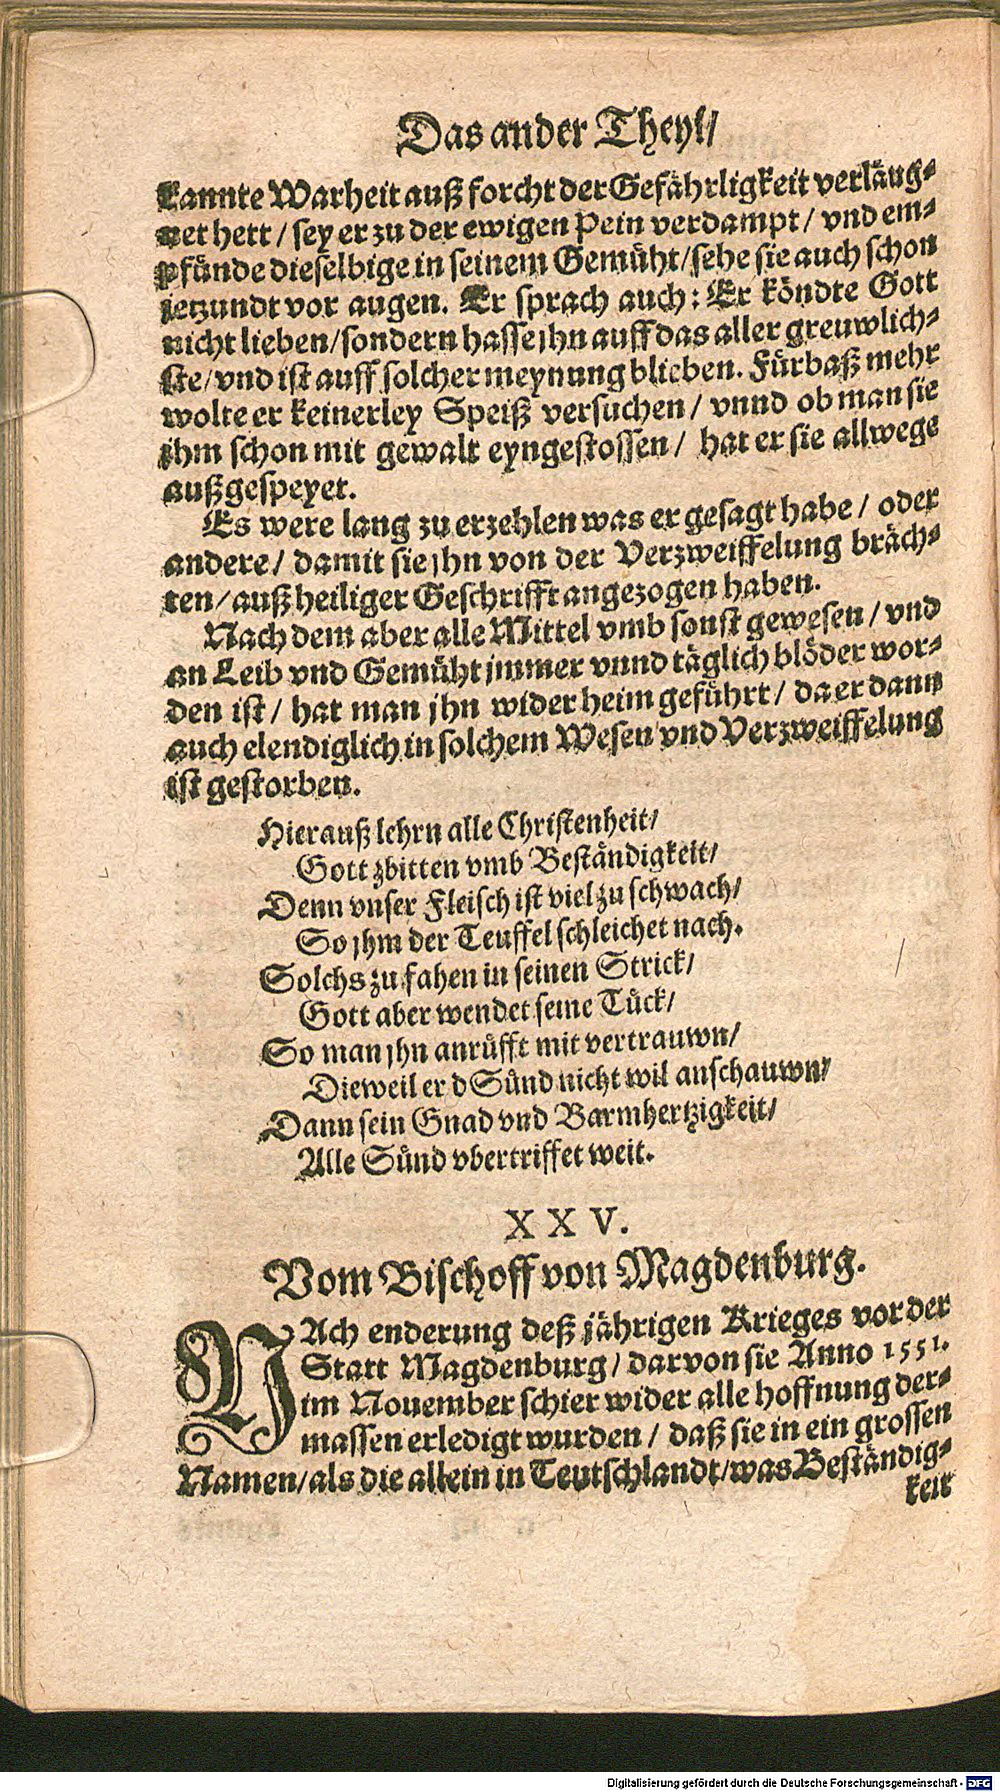 Das ander Theyl/
kannte Warheit auß forcht der Gefährligkeit verläug⸗
net hett / sey er zu der ewigen Pein verdampt / vnd em⸗
pfünde dieselbige in seinem Gemüht/sehe sie auch schon
jetzundt vor augen. Er sprach auch: Er köndte Gott
nicht lieben/sondern hasse jhn auff das aller greuwlich⸗
ste/vnd ist auff solcher meynung blieben. Fürbaß mehr
wolte er keinerley Speiß versuchen / vnnd ob man sie
jhm schon mit gewalt eyngestossen / hat er sie allwege
außgespeyet.
Es were lang zu erzehlen was er gesagt habe / oder
andere / damit sie jhn von der Verzweiffelung bräch⸗
ten/auß heiliger Geschrifft angezogen haben.
Nach dem aber alle Mittel vmb sonst gewesen / vnd
an Leib vnd Gemüht jmmer vnnd täglich blöder wor⸗
den ist / hat man jhn wider heim geführt / da er dann
auch elendiglich in solchem Wesen vnd Verzweiffelung
ist gestorben.
Hierauß lehrn alle Christenheit/
Gott zbitten vmb Beständigkeit/
Denn vnser Fleisch ist viel zu schwach/
So jhm der Teuffel schleichet nach.
Solchs zu fahen in seinen Strick/
Gott aber wendet seine Tück/
So man jhn anrüfft mit vertrauwn/
Dieweil er d Sünd nicht wil anschauwn/
Dann sein Gnad vnd Barmhertzigkeit/
Alle Sünd vbertriffet weit.
X X V.
Vom Bischoff von Magdenburg.
NAch enderung deß jährigen Krieges vor der
Statt Magdenburg / darvon sie Anno 1551.
im Nouember schier wider alle hoffnung der⸗
massen erledigt wurden / daß sie in ein grossen
Namen/als die allein in Teutschlandt/was Beständig⸗
keit
Digitalisierung gefördert durch die Deutsche Forschungsgemeinschaft - DFG